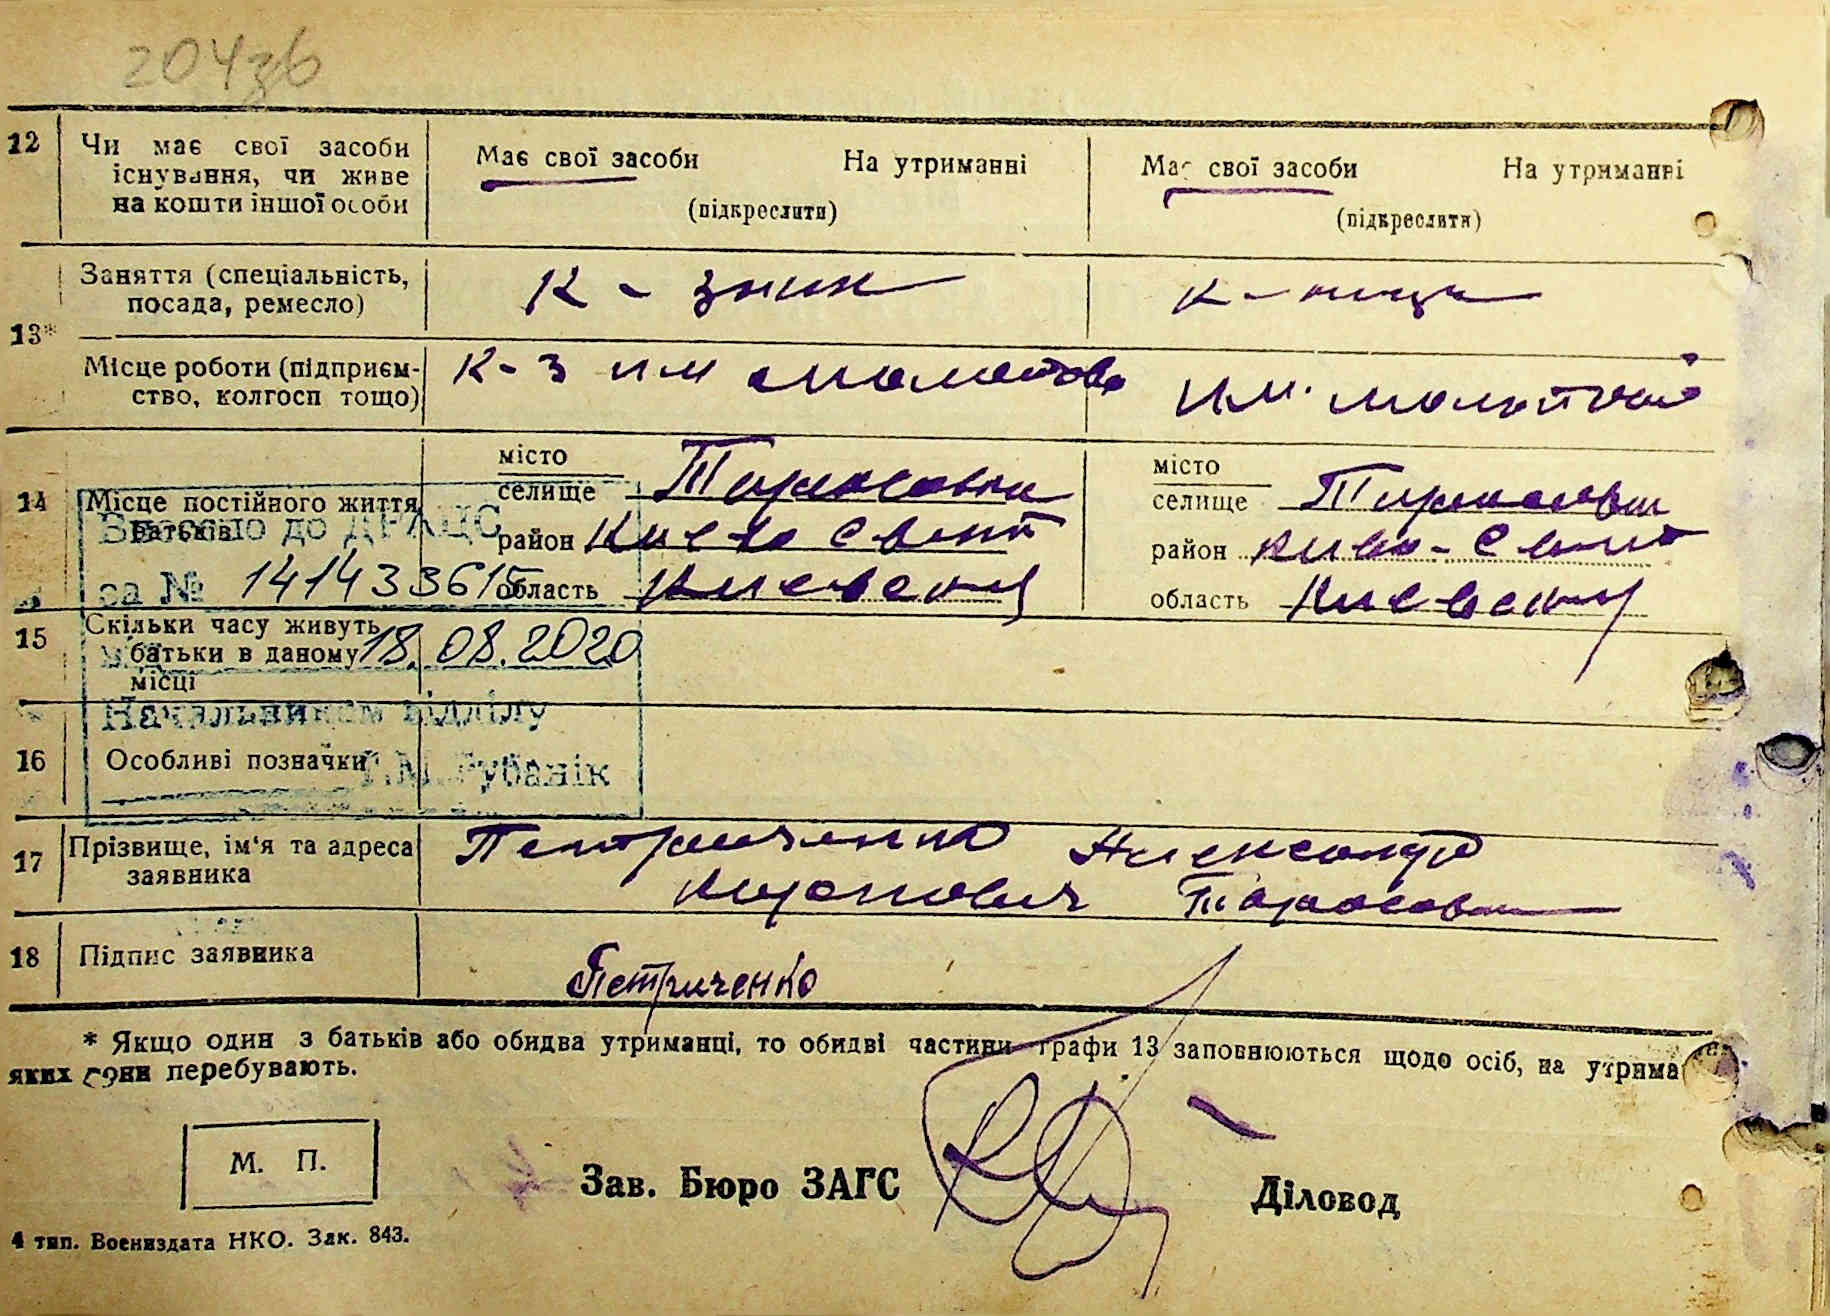 204зв
12 Чи має свої засоби існування, чи живе на кошти іншої особи
Має свої засоби На утриманні
(підкреслити)
Має свої засоби На утриманні
(підкреслити)
13*
Заняття (спеціальність,
посада, ремесло)
К - зник
к-ниця
Місце роботи (підприєм-
ство, колгосп тощо)
К-з им Молотова
им. Молотова
14 Місце постійного життя
батьків
місто
селище Тарасовка
район Киево Свят
область Киевская
місто
селище Тарасовка
район Киево-Свят
область Киевская
Внесено до ДРАЦС
за № 141433615
18.08.2020
Начальником відділу
Рубанік
15 Скільки часу живуть
батьки в даному
місці
16 Особливі позначки
17 Прізвище, ім'я та адреса
заявника
Петриченко Александр
Карпович Тарасовка
18 Підпис заявника
Петриченко
* Якщо один з батьків або обидва утриманці, то обидві частини графи 13 заповнюються щодо осіб, на
яких вони перебувають.
М. П.
Зав. Бюро ЗАГС
Діловод
4 тип. Воениздата НКО. Зак. 843.